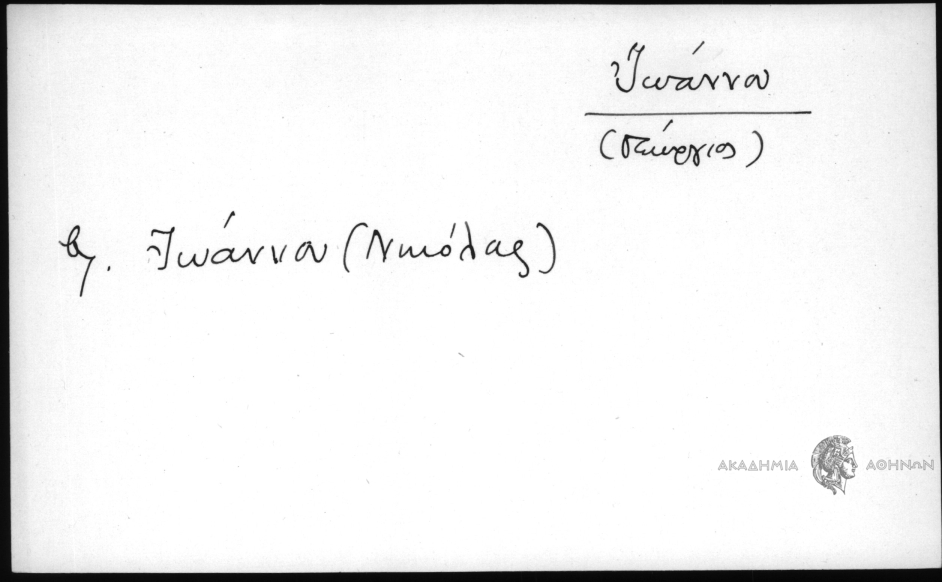 Ἰωάννου
(Γεώργιος)
βλ. Ἰωάννου (Νικόλας)
ΑΚΑΔΗΜΙΑ ΑΘΗΝΩΝ